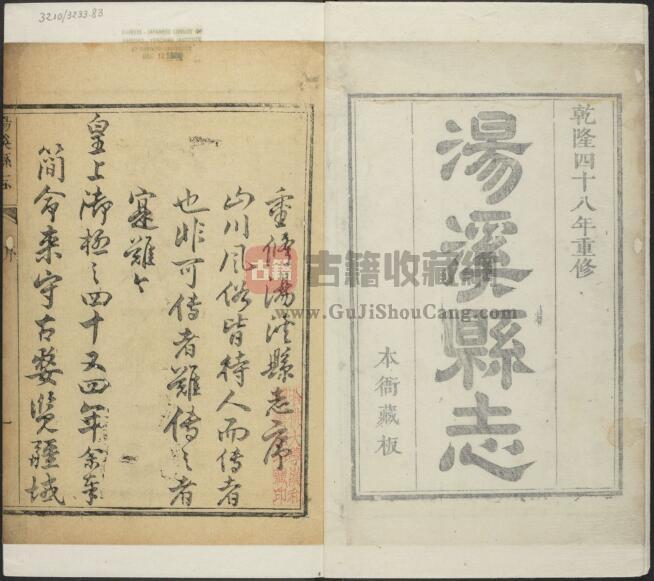 3210/3233.83
乾隆四十八年重修
湯溪縣志
本衙藏板
重修湯溪縣志序
山川風俗皆待人而傳者
也非可傳者難傳之者
寔難々
皇上御極之四十又四年余奉
簡命來守古婺覽疆域
序
古籍
古籍收藏
www.GuJiShouCang.com